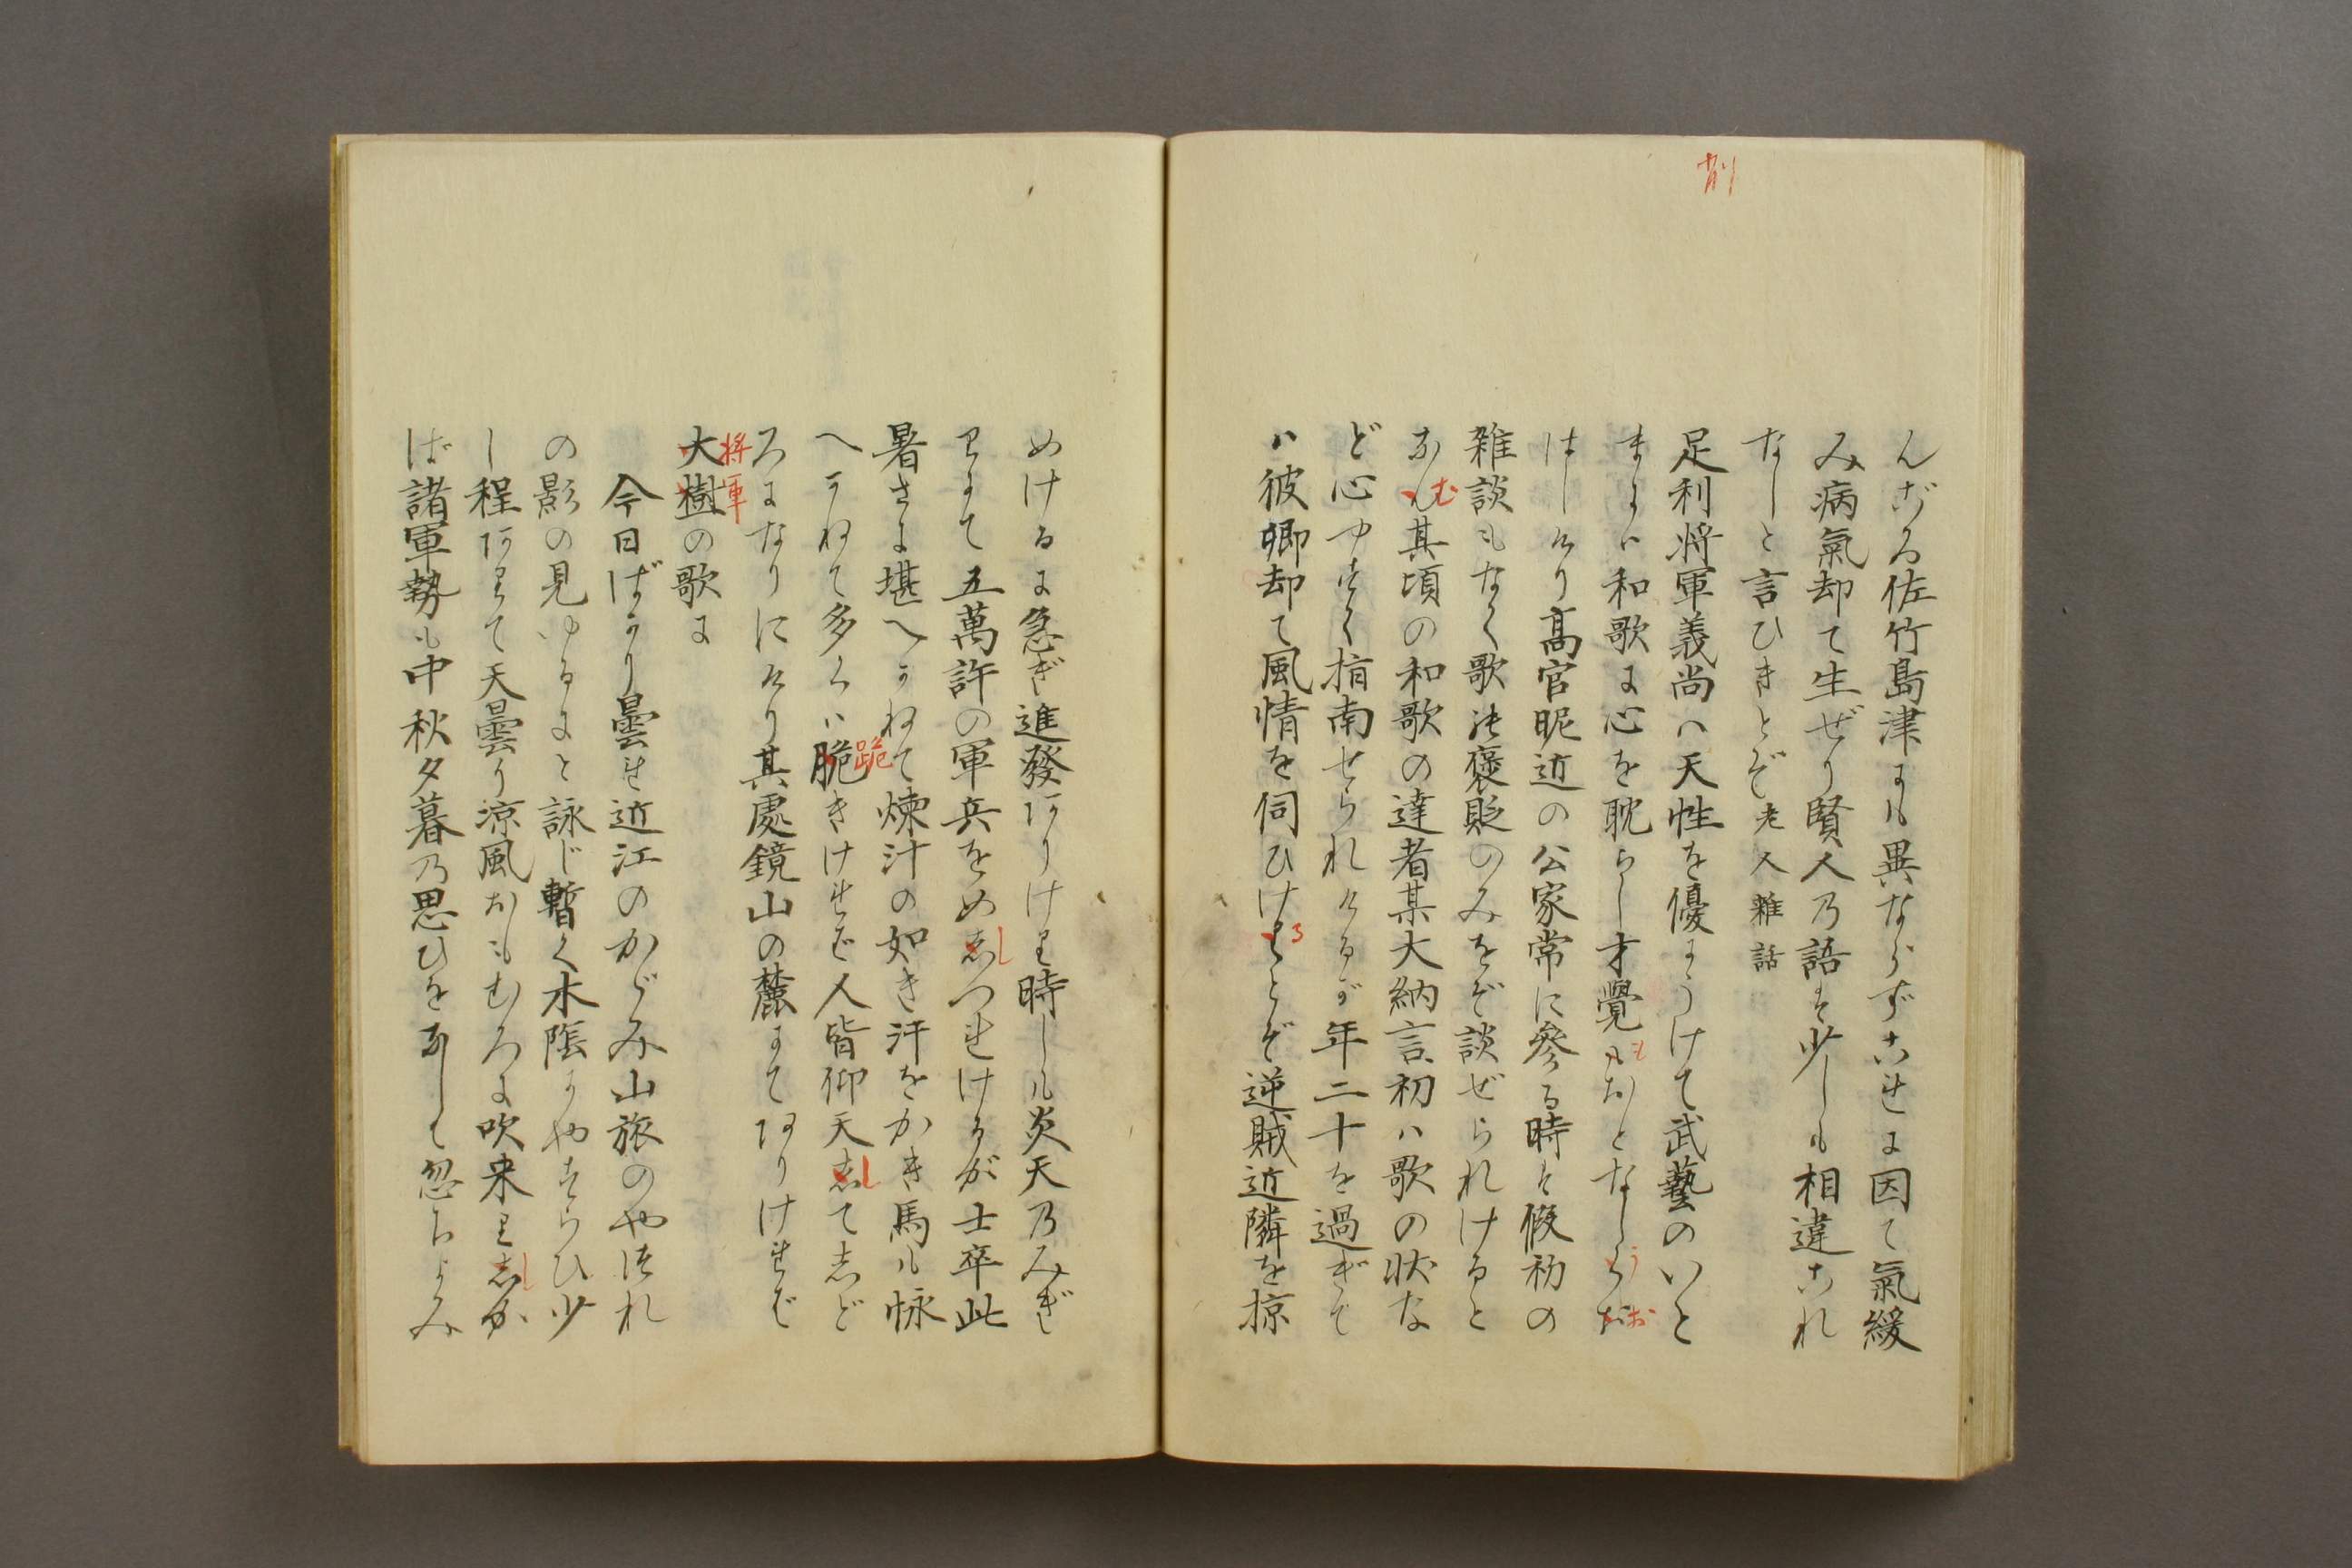 削
んざる佐竹島津にも異ならずこれに因て氣緩
み病氣却て生ぜり賢人の語を少しも相違これ
なしと言ひきとぞ老人雜話
足利将軍義尚ハ天性を優にうけて武藝のいと
まにハ和歌に心を耽らし才覺もおとなしうお
はしけり髙官昵近の公家常に參る時も假初の
雑談もなく歌の褒貶のみをぞ談ぜられけると
なむ其頃の和歌の達者某大納言初ハ歌の状な
ど心やすく指南せられけるが年二十を過ぎて
ハ彼卿却て風情を伺ひけるとぞ逆賊近隣を掠
めけるに急ぎ進發ありけり時しも炎天のみぎ
りにて五萬許の軍兵をめしつれけるが士卒此
暑さに堪へかねて煉汁の如き汗をかき馬も怺
へかねて多くハ跪きけれバ人皆仰天して志ど
ろになりにけり其處鏡山の麓にてありけれバ
将軍
大樹の歌に
今日ばかり曇れ近江のかゞみ山旅のやつれ
の影の見ゆるにと詠じ暫く木陰にやすらひ少
し程ありて天曇り涼風おもむろに吹来りしか
ば諸軍勢も中秋夕暮の思ひをなして忽ちよみ